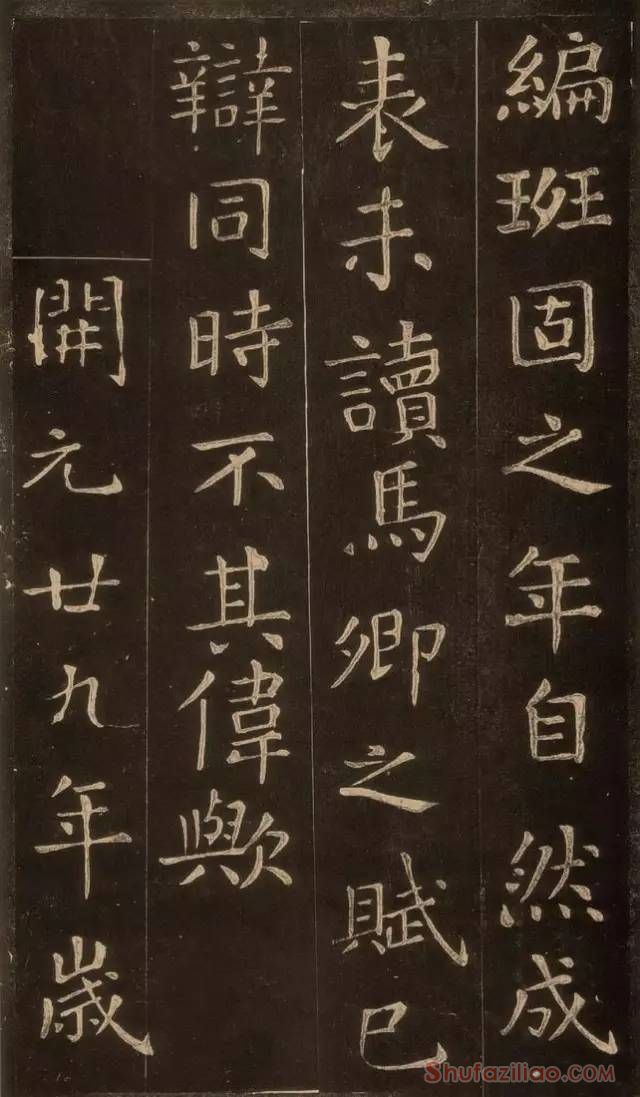 編班固之年自然成
表未讀馬卿之賦已
辯同時不其偉歟
開元廿九年歲
Shufaziliao.com